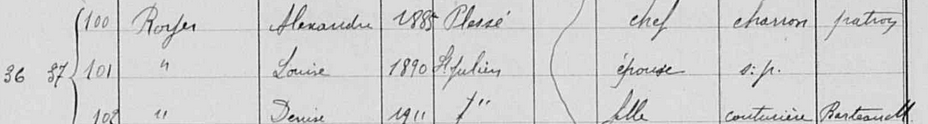 100 Royer Alexandre 1885 Plessé chef charron patron
36 37 101 " Louise 1890 St Julien épouse s.p.
102 " Denise 1911 " fille couturière